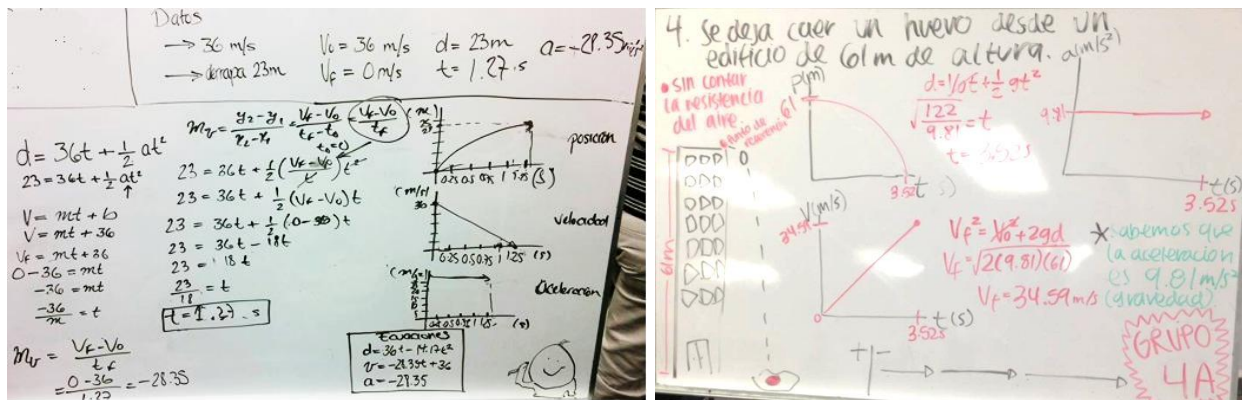 Datos
→ 36 m/s
→ derrapa 23m
V₀ = 36 m/s
V_f = 0 m/s
d = 23m
t = 1.27 s
d = 36t + ½ at²
23 = 36t + ½ at²
V = mt + b
V = mt + 36
V_f = mt + 36
0 - 36 = mt
-36 = mt
-36/m = t
m_v = (V_f - V₀)/t_f
= (0 - 36)/1.27 = -28.35
m_v = (y₂ - y₁)/(x₂ - x₁) = (V_f - V₀)/(t_f - t₀) = (V_f - V₀)/t_f
t₀ = 0
23 = 36t + ½ ((V_f - V₀)/t) t²
23 = 36t + ½ (V_f - V₀)t
23 = 36t - 18t
23 = 18t
23/18 = t
t = 1.27 s
posición
(s)
(m/s)
36
velocidad
(s)
aceleración
(s)
Ecuaciones
a = -28.35
4. Se deja caer un huevo desde un
edificio de 61m de altura.
• sin contar
la resistencia
del aire
punto de
referencia
0
61m
P(m)
61
3.52
t(s)
d = V₀t + ½ gt²
√(122/9.81) = t
t = 3.52s
a(m/s²)
9.81
t(s)
3.52s
V(m/s)
34.59
0
t(s)
3.52s
V_f² = V₀² + 2gd
V_f = √2(9.81)(61)
V_f = 34.59 m/s
* sabemos que
la aceleración
es 9.81 m/s²
(gravedad)
+ -
GRUPO
4A